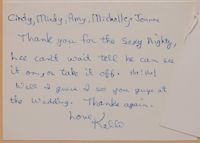 Cindy, Mindy, Amy, Michelle & Joanne
Thank you for the sexy nighty,
Lee can't wait tell he can see
it on, or take it off. Ha! Ha!
Well I guess I see you guys at
the wedding. Thanks again.
Love
Kelli